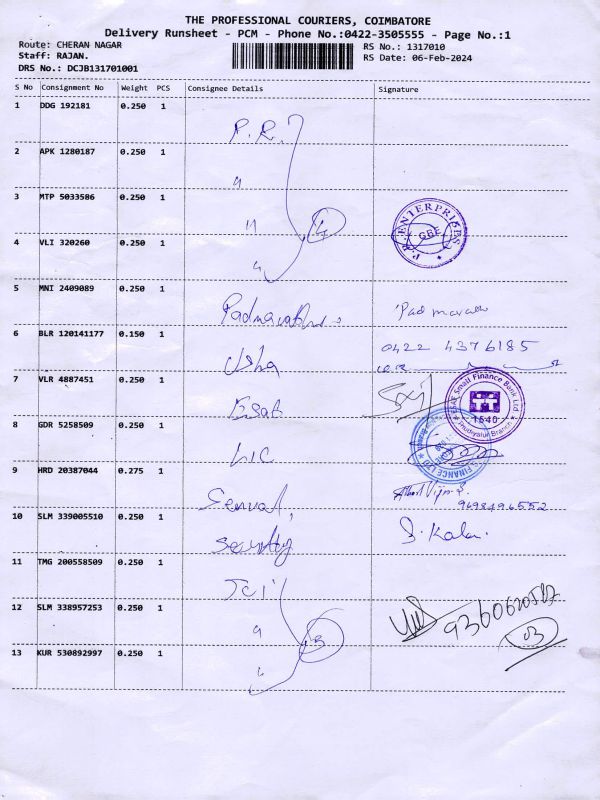 THE PROFESSIONAL COURIERS, COIMBATORE
Delivery Runsheet - PCM - Phone No.:0422-3505555 - Page No.:1
Route: CHERAN NAGAR
RS No.: 1317010
Staff: RAJAN.
RS Date: 06-Feb-2024
DRS No.: DCJB131701001
S No Consignment No Weight PCS Consignee Details Signature
1 DDG 192181 0.250 1 P.R.
2 APK 1280187 0.250 1 "
3 MTP 5033586 0.250 1 " 4
P.R.ENTERPRISES GBE
4 VLI 320260 0.250 1 "
5 MNI 2409089 0.250 1 Padmavathi
6 BLR 120141177 0.150 1 Usha 0422 4376185
7 VLR 4887451 0.250 1 Esaf
ESAF Small Finance Bank Ltd 1540 Branch
8 GDR 5258509 0.250 1 LIC
FINANCE LTD
9 HRD 20387044 0.275 1 9698496552
10 SLM 339005510 0.250 1 Security S. Kala
11 TMG 200558509 0.250 1
12 SLM 338957253 0.250 1 " 3
03
13 KUR 530892997 0.250 1 "